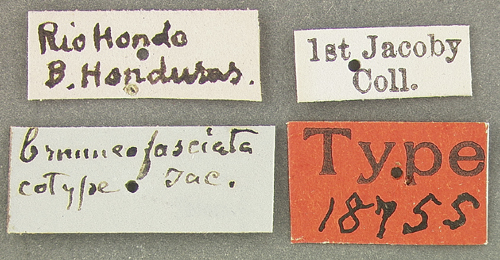 Rio Hondo
B. Honduras.
1st Jacoby
Coll.
brunneofasciata
cotype. Jac.
Type
18755